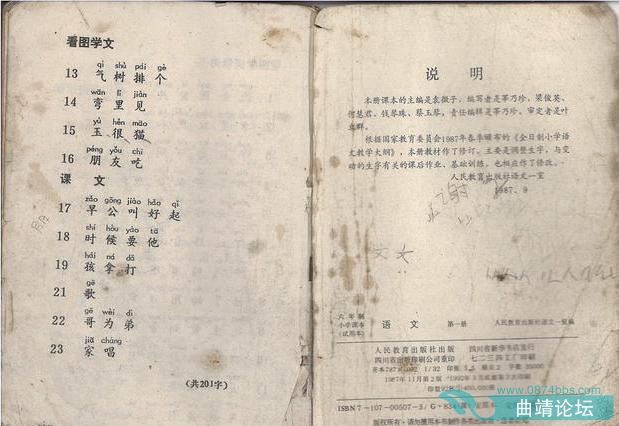 看图学文
qì shù pái gè
13 气 树 排 个
wān lǐ jiàn
14 弯 里 见
yù hěn māo
15 玉 很 猫
péng yǒu chī
16 朋 友 吃
课 文
zǎo gōng jiào hǎo qǐ
17 早 公 叫 好 起
shí hòu yào tā
18 时 候 要 他
hái ná dǎ
19 孩 拿 打
gē
21 歌
gē wèi dì
22 哥 为 弟
jiā chàng
23 家 唱
(共201字)
说 明
本册课本的主编是袁微子,编写者是莘乃珍、梁俊英、
何慧君、钱琴珠、蔡玉琴,责任编辑是莘乃珍,审定者是叶
立群。
根据国家教育委员会1987年春季颁布的《全日制小学语
文教学大纲》,本册教材作了修订。主要是调整生字,与变
动的生字有关的课后作业、基础训练,也相应作了修改。
人民教育出版社语文一室
1987、9
六年制
小学课本
(试用本)
语文 第一册 人民教育出版社语文一室编
人民教育出版社出版 四川省新华书店发行
四川省出版印刷公司重印 七二三四工厂印刷
开本787×1092 1/32 印张 5.5
1987年11月第2版
ISBN7-107-00507-3/G·834
www.0874bbs.com
曲靖论坛